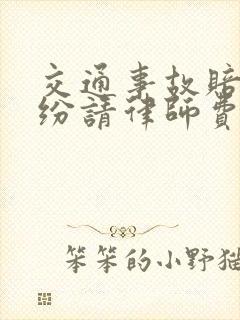 交通事故賠
紛請律師費
笨笨的小野貓